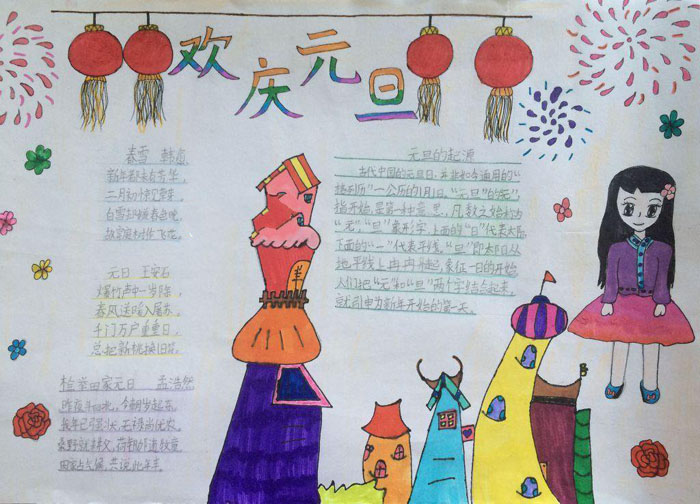 欢庆元旦
春雪 韩愈
新年都未有芳华，
二月初惊见草芽。
白雪却嫌春色晚，
故穿庭树作飞花。
元日 王安石
爆竹声中一岁除，
春风送暖入屠苏。
千门万户重重日，
总把新桃换旧符。
田家元日 孟浩然
昨夜斗回北，今朝岁起东。
我年已强仕，无禄尚忧农。
桑野就耕父，荷锄随牧童。
田家占气候，共说此年丰。
元旦的起源
古代中国的元旦日，并非如今通用的"
格利历"—公历的1月1日。"元旦"的"元"，
指开始，是第一的意思，凡数之始称为
"元"；"旦"象形字，上面的"日"代表太阳，
下面的"一"代表平线，"旦"即太阳从
地平线上冉冉升起，象征一日的开始。
人们把"元"和"旦"两个字结合起来，
就引申为新年开始的第一天。